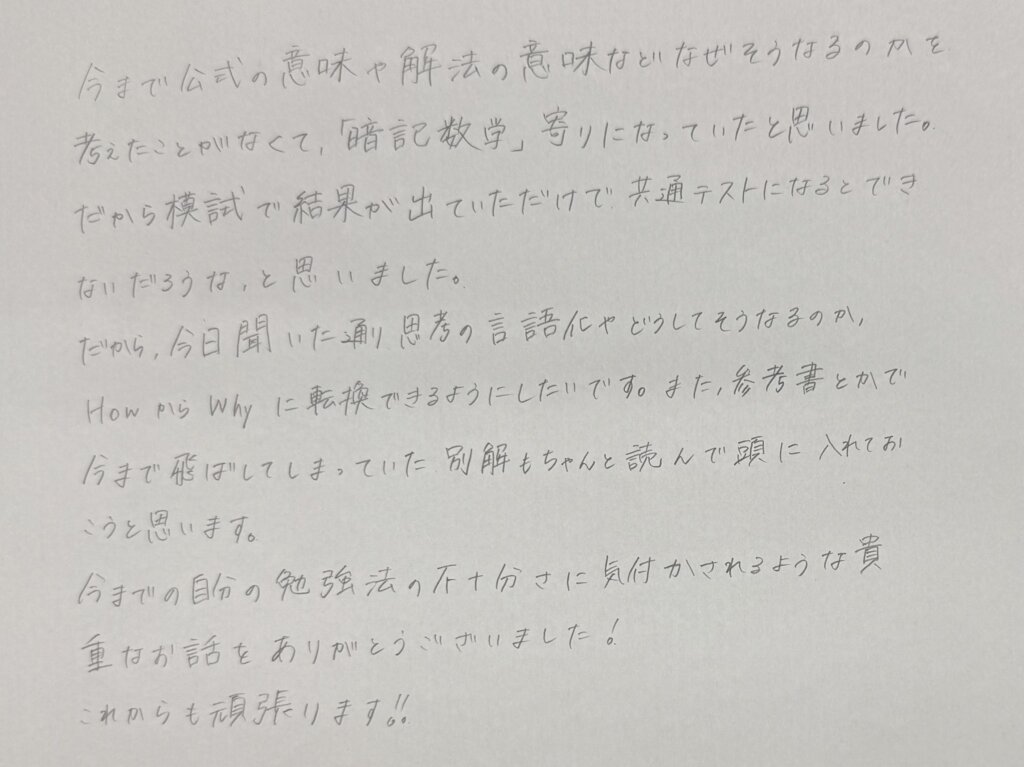 今まで公式の意味や解法の意味などなぜそうなるのかを
考えたことがなくて,「暗記数学」寄りになっていたと思いました。
だから模試で結果が出ていただけで共通テストになるとでき
ないだろうな,と思いました。
だから,今日聞いた通り思考の言語化やどうしてそうなるのか,
HowからWhyに転換できるようにしたいです。また,参考書とかで
今まで飛ばしてしまっていた別解もちゃんと読んで頭に入れてお
こうと思います。
今までの自分の勉強法の不十分さに気付かされるような貴
重なお話をありがとうございました!
これからも頑張ります!!